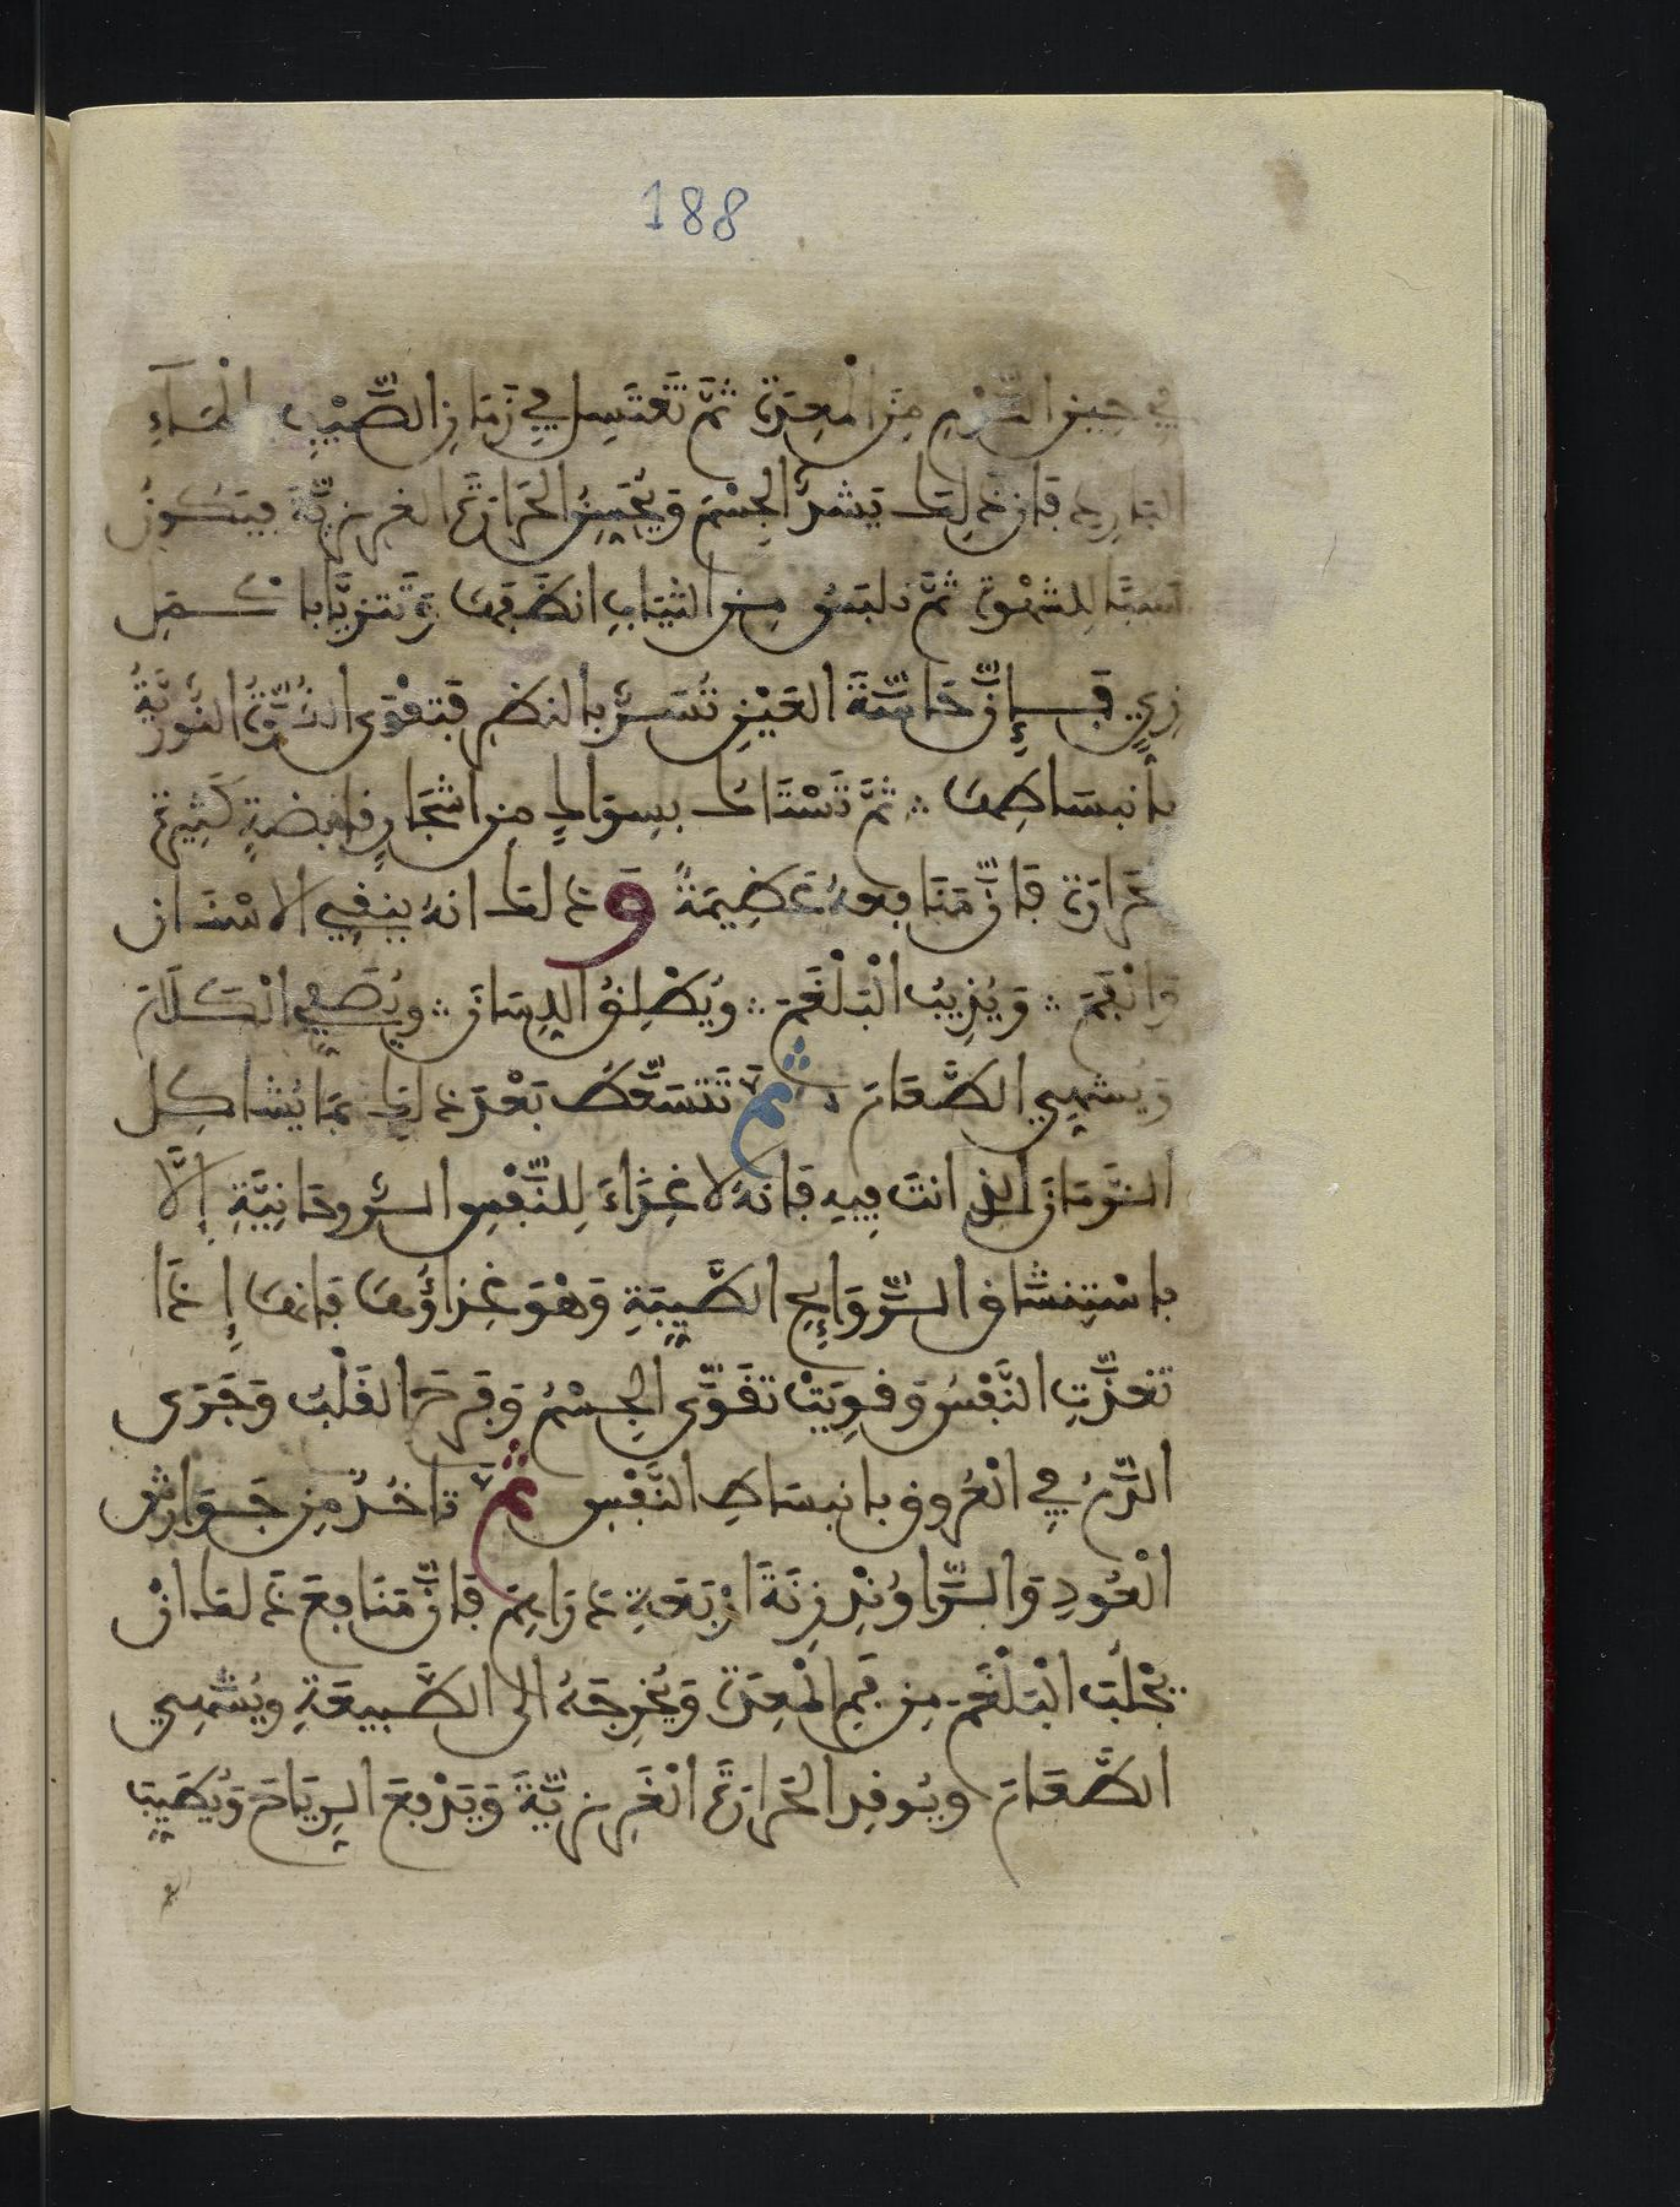 188
في حين النوم من المعدة ثمّ تَغتَسِل في زَمَانِ الصَّيْفِ بالمَآءِ
البَارِد فإن ذلك يَشدُّ الجِسْمَ وَيُحَسِّنُ الحَرَارَةَ الغريزيَّةَ فيَكونُ
سببًا للشهْوة ثمّ تلبَسُ من الثيَابِ انظَفهَا وَتَتزيَّا باكمل
زِيٍّ فَإِنَّ حَاسَّةَ العَيْنِ تُسَرُّ بالنظرِ فَتَقْوَى القُوَّةُ النُّورِيَّةُ
بانبسَاطِهَا ؞ ثمَّ تَسْتَاك بِسِوَاكٍ مِن اشْجَارٍ قابِضةٍ كَثِيرة
حَرَارَة فَإنَّ مَنَافِعهُ عَظِيمَةٌ وَذلك انهُ ينقِّي الاسْنَان
وَالْفَمَ ؞ وَيُذِيبُ الْبَلْغَمَ ؞ ويُطْلِقُ اللِسَانَ ؞ ويُصَفِّي الْكَلَامَ
وَيُشهِّي الطَّعَامَ ؞ ثمَّ تَتسَعَّطُ بَعْدَ ذلِكَ بمَا يُشَاكِل
الزَّمَانَ الذي انتَ فِيهِ فَإنهُ لا غِذَاءَ لِلنَّفْسِ الرُّوحَانِيَّةِ إلَّا
بِاسْتِنشَاقِ الرَّوَايِحِ الطَّيِّبَةِ وَهْوَ غِذَاؤُهَا فَإنهَا إِذَا
تَغذَّتِ النَّفْسُ وَقوِيَتْ تَقَوَّى الجِسْمُ وَفرحَ القَلْبُ وَجَرَى
الدَّمُ فِي الْعُرُوقِ بانبسَاطِ النَّفْسِ ثمَّ تَاخُذُ مِن جَوَارِش
الْعُودِ وَالرَّاوَنْد زِنَةَ ارْبَعَةِ دَرَاهِمَ فَإنَّ مَنَافِعَ ذَلكَ انْ
يَجْلُبَ الْبَلْغَمَ مِن فَمِ المْعِدَة وَيُخرِجَهُ الى الطَّبِيعَةِ ويُشَهِّي
الطَّعَامَ ويُوقِد الحَرَارَةَ الْغَرِيزِيَّةَ وَيَدْفَعَ الرِيَاحَ وَيُطَيِّبَ